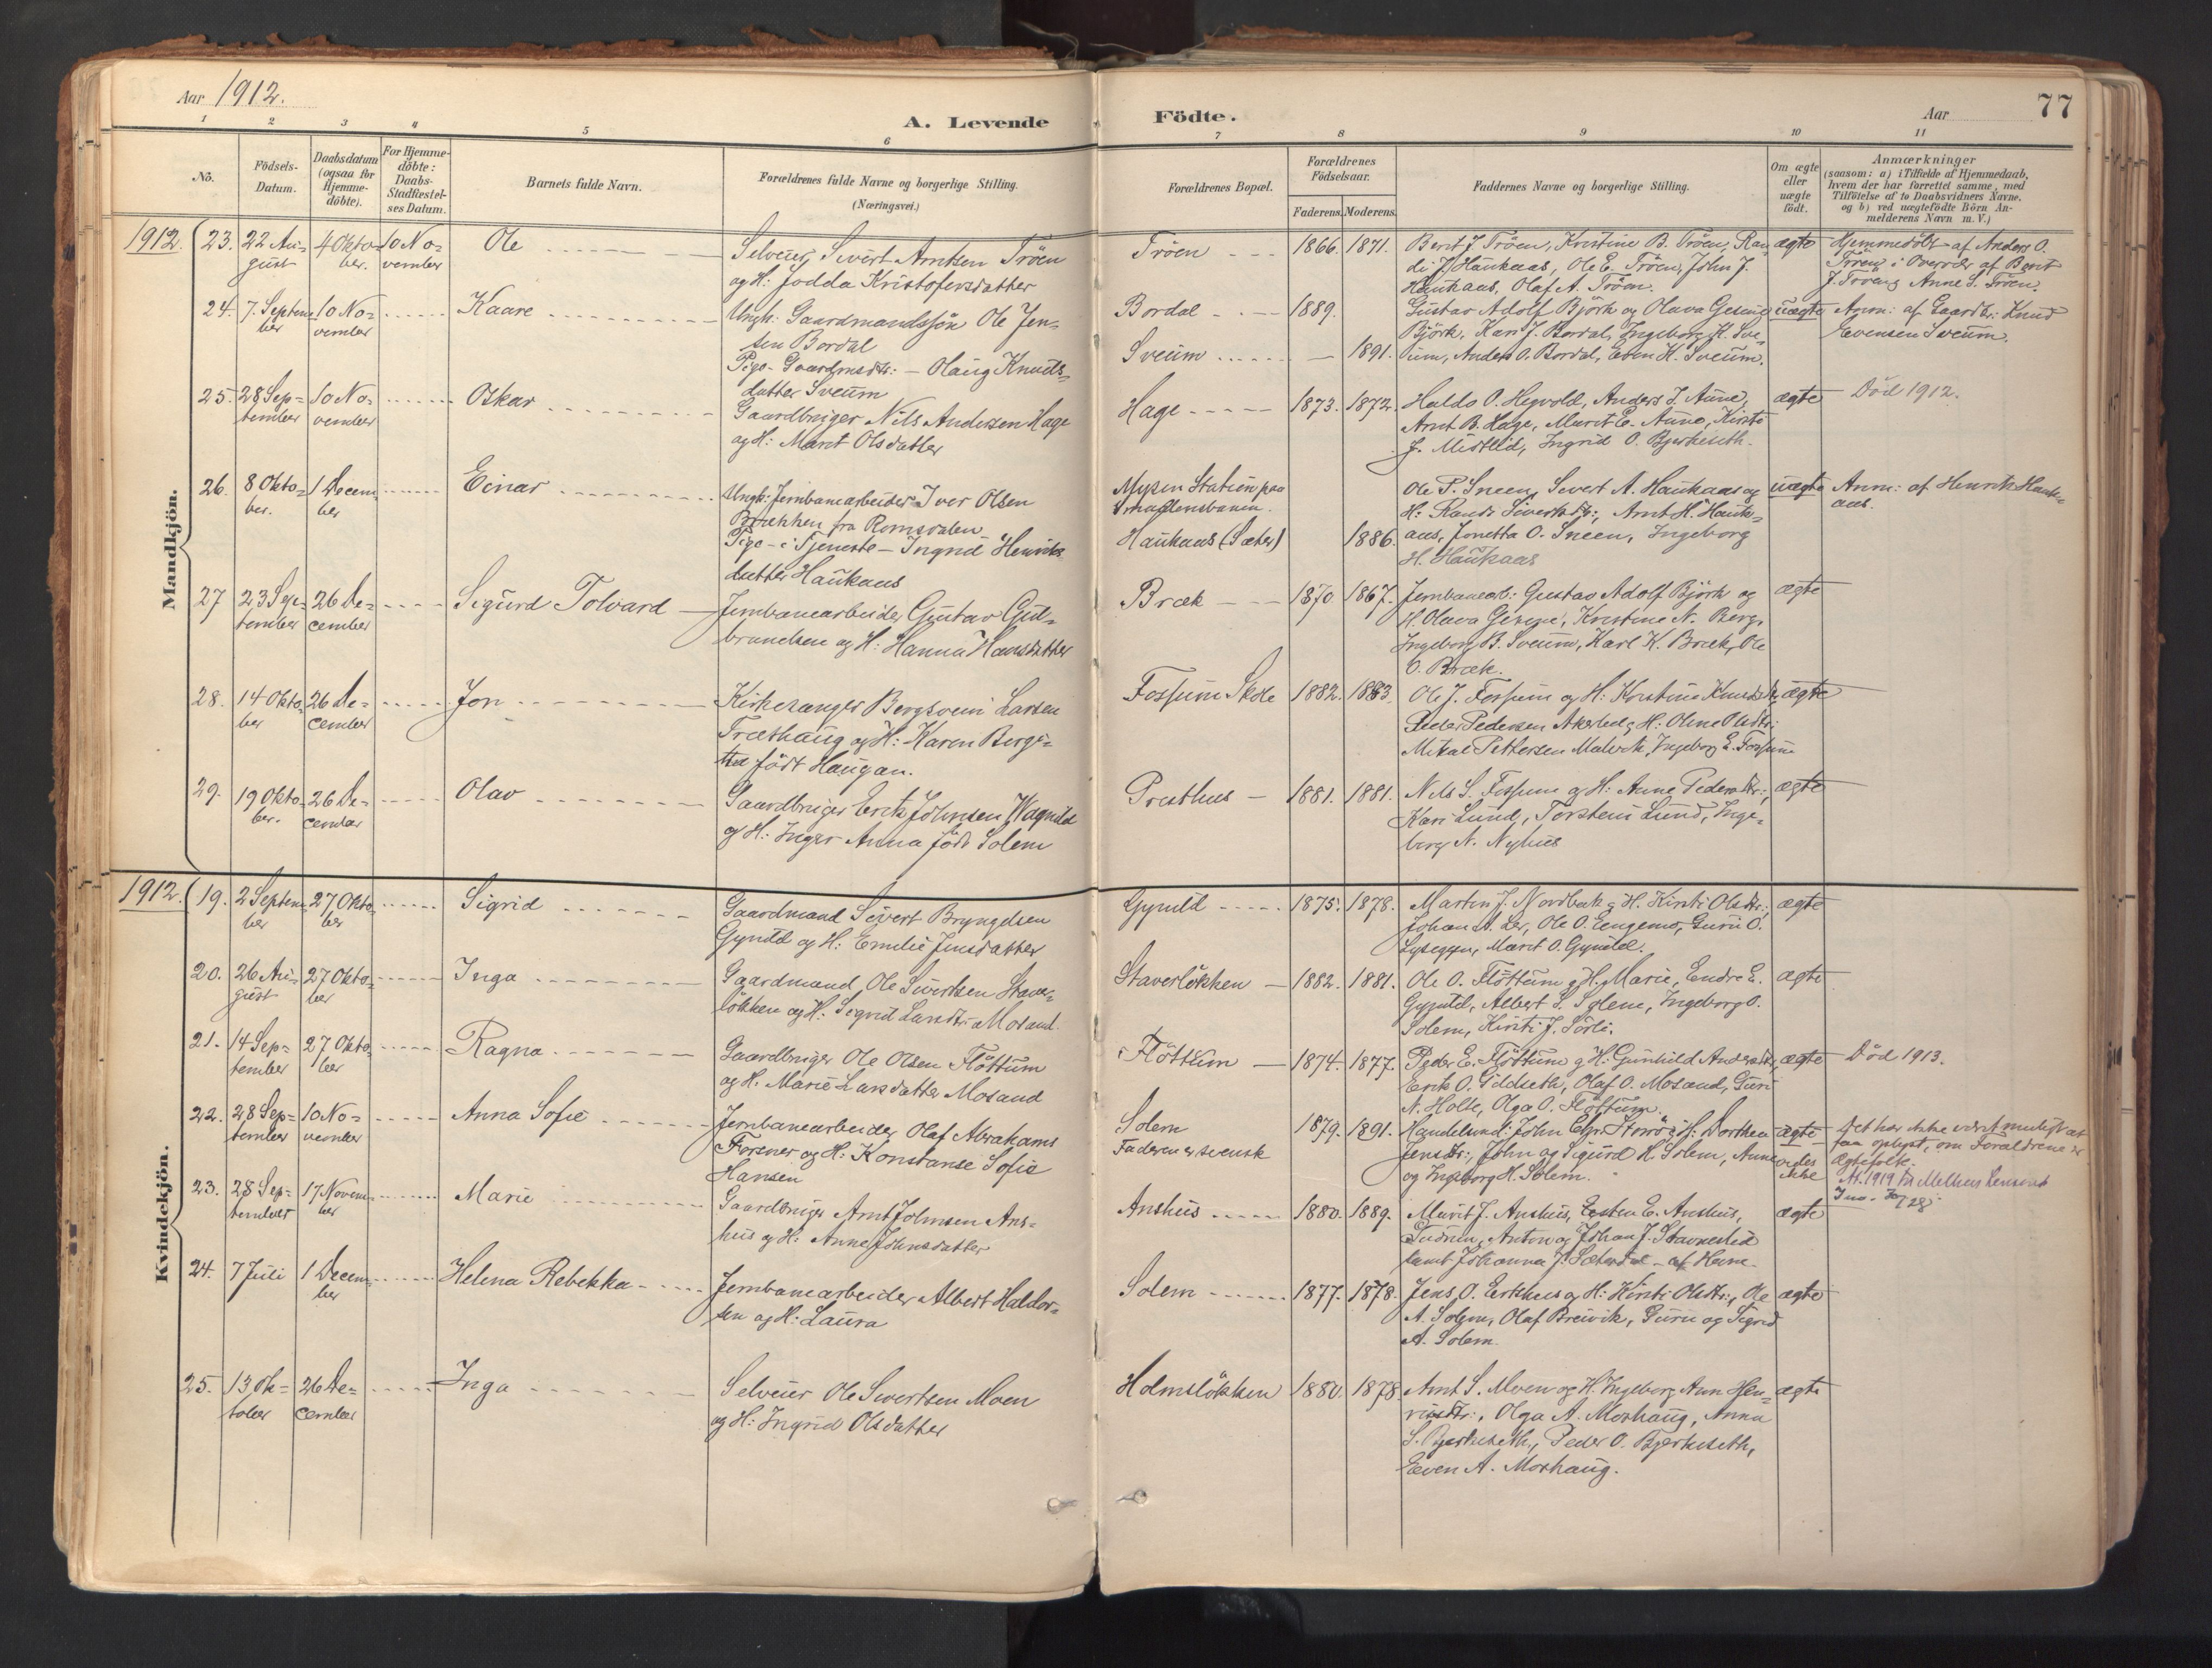 Aar 1912.
A. Levende
Födte.
Aar
77
1 2 3 4 5 6 7 8 9 10 11
No.
Födsels-
Datum.
Daabsdatum
(ogsaa for
Hjemme-
döbte).
For Hjemme-
döbte:
Daabs-
Stadfæstel-
ses Datum.
Barnets fulde Navn.
Forældrenes fulde Navne og borgerlige Stilling.
(Næringsvei.)
Forældrenes Bopæl.
Forældrenes
Födselsaar.
Faderens. Moderens.
Faddernes Navne og borgerlige Stilling.
Om ægte
eller
uægte
födt.
Anmærkninger
(saasom: a) i Tilfælde af Hjemmedaab,
hvem der har forrettet samme, med
Tilföielse af to Daabsvidners Navne,
og b) ved uægtefödte Börn An-
melderens Navn m. V.)
Mandkjön.
1912. 23. 22 Au-
gust
4 Okto-
ber.
10 No-
vember
Ole
Selveier Sivert Arntsen Tröen
og H: Jodda Kristofersdatter
Tröen 1866. 1871.
Berit J. Tröen, Kristine B. Tröen, Ran-
di J. Haukaas, Ole E. Tröen, John J.
Haukaas, Olaf A. Tröen.
ægte
Hjemmedöbt af Anders O.
Tröen i Overvær af Berit
J. Tröen og Anne S. Tröen.
24. 7. Septem-
ber
10 No-
vember
Kaare
Ungk: Gaardmandssön Ole Jen-
sen Bordal
Pige - Gaardmsdtr: - Olaug Knuds-
datter Sveum
Bordal 1889.
Sveum — 1891.
Gustav Adolf Björk og Olava Gesine
Björk, Kari J. Bordal, Ingeborg K. Sve-
um, Anders O. Bordal, Even K. Sveum.
uægte
Anm: af Gaardbr: Knud
Evensen Sveum.
25. 28 Sep-
tember
10 No-
vember
Oskar
Gaardbruger Nils Andersen Hage
og H: Marit Olsdatter
Hage 1873. 1872.
Haldo O. Hegvold, Anders J. Aune,
Arnt B. Hage, Marit E. Aune, Kirsti
J. Midtlid, Ingrid O. Bjerkeseth.
ægte
Död 1912.
26. 8 Okto-
ber.
1 Decem-
ber
Einar
Ungk: Jernbanearbeider Iver Olsen
Brækken fra Romsdalen
Pige - i Tjeneste - Ingrid Henriks-
datter Haukaas
Mysen Station paa
Smaalensbanen.
Haukaas (Sæter) 1886.
Ole P. Sneen, Sivert A. Haukaas og
H: Randi Sivertsdtr:, Arnt H. Hauk-
aas, Jonetta O. Sneen, Ingeborg
H. Haukaas
uægte
Anm: af Henrik Hauk-
aas.
27 23 Sep-
tember
26 De-
cember
Sigurd Tolvard
Jernbanearbeider Gustav Gud-
brandsen og H: Hanna Hansdatter
Bræk 1870 1867.
Jernbanearb: Gustav Adolf Björk og
H. Olava Gesine, Kristine N. Berg,
Ingeborg B. Sveum, Karl K. Bræk, Ole
O. Bræk.
ægte
28. 14 Okto-
ber
26 De-
cember
Jon
Kirkesanger Bergsvein Larsen
Træthaug og H: Karen Bergi-
tta födt Haugan.
Fossum Skole 1882. 1883.
Ole J. Fossum og H: Kristine Knudsdtr,
Peder Pedersen Akerlid og H: Oline Olsdtr:
Mikal Pettersen Malvik, Ingeborg E. Fossum
ægte
29. 19 Okto-
ber.
26 De-
cember
Olav
Gaardbruger Erik Johnsen Wagnild
og H: Inger Anna födt Solem
Presthus 1881. 1881.
Nils S. Fossum og H: Anne Pedersdtr:,
Kari Lund, Torstein Lund, Inge-
borg N. Nyhus
ægte
Kvindekjön.
1912. 19. 2 Septem-
ber
27 Okto-
ber
Sigrid
Gaardmand Sivert Bryngelsen
Gynild og H: Emilie Jensdatter
Gynild 1875. 1878.
Martin J. Nordbæk og H. Kirsti Olsdtr:,
Johan A. Ler, Ole O. Engemo, Guru O.
Marit O. Gynild.
ægte
20. 26 Au-
gust
27 Okto-
ber
Inga
Gaardmand Ole Sivertsen Staver-
lökken og H. Sigrid Larsdtr: Mosand.
Staverlökken 1882. 1881.
Ole O. Flöttum og H. Marie, Endre E.
Gynild, Albert S. Solem, Ingeborg O.
Solem, Kirsti J. Sörli.
ægte
21. 14 Sep-
tember
27 Okto-
ber
Ragna
Gaardbruger Ole Olsen Flöttum
og H. Marie Larsdatter Mosand
Flöttum 1874. 1877.
Peder E. Flöttum og H: Gunhild Andersdtr,
Erik O. Gildseth, Olaf O. Mosand, Guri
N. Holte, Olga O. Flöttum.
ægte
Död 1913.
22. 28 Sep-
tember
10 No-
vember
Anna Sofie
Jernbanearbeider Olaf Abrahams
Forsner og H: Konstanse Sofie
Hansen
Solem
Faderen er svensk
1879. 1891.
Handelsmd: John Chr. Storrö og H: Dorthea
Jensdtr:, John og Sigurd H. Solem, Anne
og Ingeborg H. Solem.
ægte
vides
ikke
Det har ikke været muligt at
faa oplyst, om Forældrene er
Ægtefolk.
23. 28 Sep-
tember
17 Novem-
ber
Marie
Gaardbruger Arnt Johnsen Ans-
hus og H: Anne Johnsdatter
Anshus 1880. 1889.
Marit J. Anshus, Esten E. Anshus,
Gudrun, Anton og Johan J. Stavneslid
samt Johanna J. Sæterdal - af Heim.
ægte
24. 7 Juli
1 Decem-
ber
Helena Rebekka
Jernbanearbeider Albert Haldor-
sen og H: Laura
Solem 1877. 1878.
Jens O. Ertshus og H: Kirsti Olsdtr:, Ole
A. Solem, Olaf Breivik, Guru og Sigrid
A. Solem.
ægte
25. 13 Ok-
tober
26 De-
cember
Inga
Selveier Ole Sivertsen Moen
og H: Ingrid Olsdatter
Holmslökken 1880. 1878.
Arnt S. Moen og H. Ingeborg Ann Hen-
riksdtr:, Olga A. Moshaug, Anna
S. Bjerkeseth, Peder O. Bjerkeseth,
Even A. Moshaug.
ægte